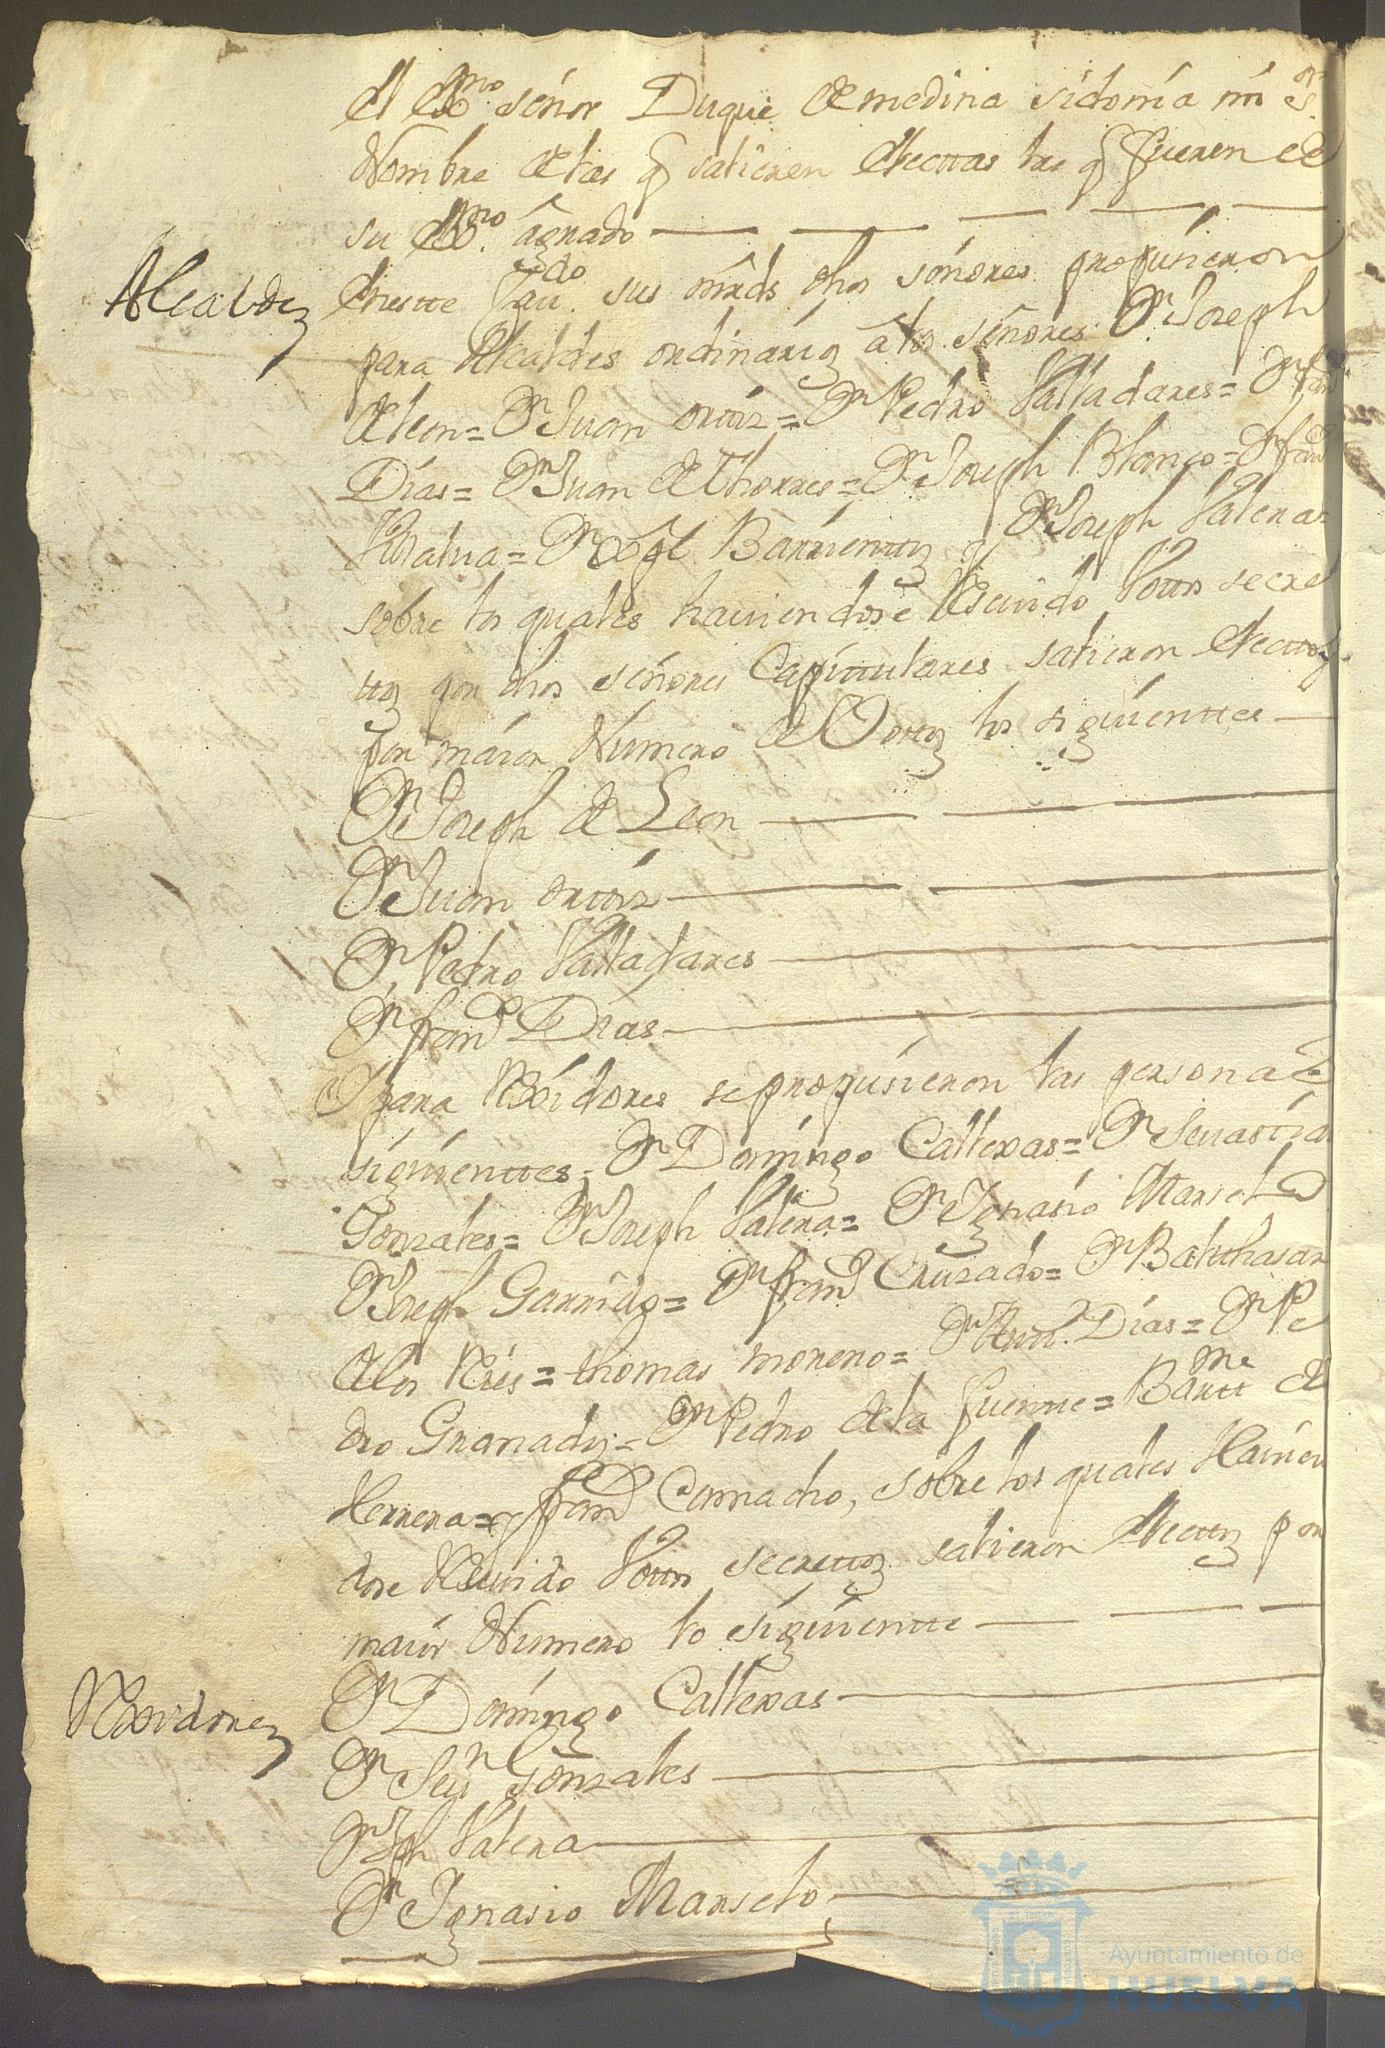 el Exmo. señor Duque de medina sidonia mi sr.
Nombre de las q salieren electtas las q fueren de
su Exmo. agrado
Alcaldes
En estte Cau.do sus mrds dhos señores propusieron
para Alcaldes ordinarios â los señores Dn Joseph
de leon = Dn Juan orttiz = Dn Pedro Valladares = Dn fran.co
Dias = Dn Juan de thorres = Dn Joseph Blanco = Dn fran.co
Barrienttos y Dn Joseph Valera =
sobre los quales haviendose Resevido Vottos secre
ttos por dhos señores Capittulares salieron electtos
por maior Numero de Vottos los siguienttes
Dn Joseph de Leon
Dn Juan orttiz
Dn Pedro Valladares
Dn fran.co Dias
Y para Rexidores se propusieron las personas
siguienttes, Dn Domingo Callexas = Dn Sevastian
Gonzales = Dn Joseph Valera = Dn Ignasio Marselo
Dn Joseph Garrido = Dn fran.co Cruzado = Dn Balthasar
de los Reis = thomas moreno = Dn Dias = Dn Pe
dro Granados = Dn Pedro de la fuentte = Bartt.me de
Herrera = y fran.co Camacho, sobre los quales Havien
dose Resevido Vottos secrettos salieron electtos por
maior Numero lo siguientte
Rexidores
Dn Domingo Callexas
Dn Sevn Gonzales
Dn Jph Valera
Dn Ignasio Marselo
Ayuntamiento de
HUELVA